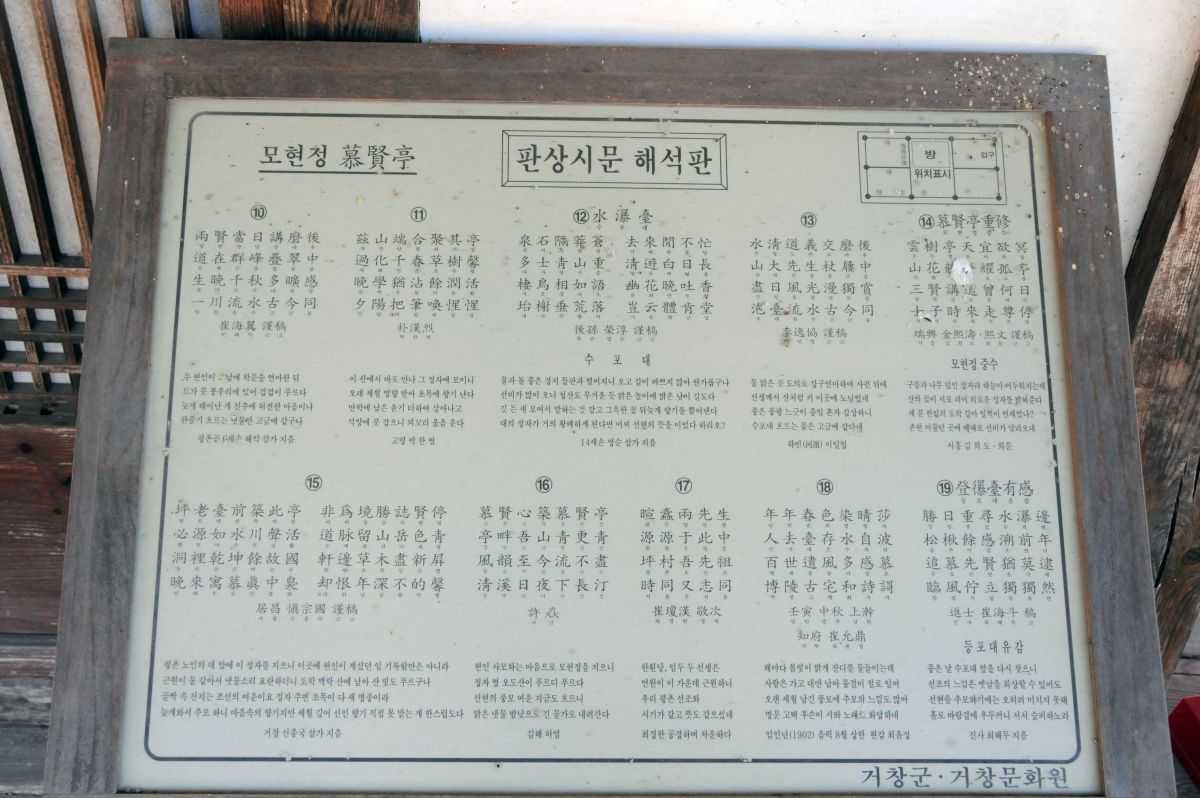 모현정 慕賢亭
판상시문 해석판
방
입구
위치표시
⑩
兩賢當日講磨後
道在群峰疊翠中
生晩千秋多曠感
一川流水古今同
崔海翼 謹稿
두 현인이 그날에 학문을 연마한 뒤
도가 뭇 봉우리에 있어 겹겹이 푸르다
늦게 태어난 게 천추에 허전한 마음이나
한줄기 흐르는 냇물만 고금에 같구다
평촌공 6세손 해익 삼가 지음
⑪
茲山端合聚其亭
過化千春草樹馨
晩學猶沾餘潤活
夕陽把筆喚惺惺
朴漢烈
이 산에서 바로 만나 그 정자에 모이니
오래 세월 영향 받아 초목에 향기 난다
만학에 남은 윤기 더하여 살아나고
석양에 붓 잡으니 꾀꼬리 울음 운다
고령 박 한 열
⑫ 水瀑臺
泉石隔莽蒼 去來閒不忙
多士靑山重 淸遊白日長
棲鳥相如語 幽花晩吐香
坮榭垂荒落 豈云體肯堂
後孫 榮淳 謹稿
수 포 대
물과 돌 좋은 경치 들판과 떨어지니 오고 감이 바쁘지 않아 한가롭구나
선비가 많이 오니 청산도 무거운 듯 맑은 놀이에 밝은 낮이 길도다
깃 든 새 모여서 말하는 것 같고 그윽한 꽃 뒤늦게 향기를 뿜어낸다
대의 정자가 거의 황폐하게 된다면 어찌 선현의 뜻을 이었다 하리오?
14세손 영순 삼가 지음
⑬
水淸道義交磨後
山大先生杖屨中
盡日風光漫獨賞
滮臺流水古今同
李逸協 謹稿
물 맑은 곳 도의로 갈구연마하며 사귄 뒤에
선생께서 산처럼 커 이곳에 노닐었네
좋은 풍광 느긋이 종일 혼자 감상하니
수포대 흐르는 물은 고금에 같다네
하빈(河濱) 이일협
⑭ 慕賢亭重修
雲樹亭天宜欲冥
山花 耀孤亭
三賢講道曾何日
士子時來走尊停
瑞興 金熙濤·熙文 謹稿
모현정 중수
구름과 나무 덮인 정자라 하늘이 어두워지는데
산의 꽃이 서로 피어 외로운 정자를 밝혀준다
세 분 현철의 도학 강마 일찍이 언제였나?
존현 머물던 곳에 때때로 선비가 달려오네
서흥 김 희 도 · 희문
⑮
坪老臺前築此亭 非爲境勝誌賢停
必源如水川聲活 道脉留山岳色青
洞裡乾坤餘故國 軒邊草木盡新屛
晩來寓慕眞中臭 却恨年深不的馨
居昌 愼宗國 謹稿
평촌 노인의 대 앞에 이 정자를 지으니 이곳에 현인이 계셨던 일 기록함만은 아니라
근원이 물 같아서 냇물소리 요란하더니 도학 맥락 산에 남아 산 빛도 푸르구나
골짝 속 천지는 조선의 여운이요 정자 주변 초목이 다 새 병풍이라
늦게와서 추모 하니 마음속의 향기지만 세월 깊어 선인 향기 직접 못 맡는 게 한스럽도다
거창 신종국 삼가 지음
⑯
慕賢心築慕賢亭
亭畔吾山靑更靑
風韻至今流不盡
淸溪日夜下長汀
許焱
현인 사모하는 마음으로 모현정을 지으니
정자 옆 오도산이 푸르디 푸르다
선현의 풍모 여운 지금도 흐르니
맑은 냇물 밤낮으로 긴 물가로 내려간다
김해 허염
⑰
暄蠹兩先生
源源于此中
坪村吾先祖
時同又志同
崔瓊漢 敬次
한훤당, 일두 두 선생은
연원이 이 가운데 근원하니
우리 평촌 선조와
시기가 같고 뜻도 같으셨네
최경한 공경하며 차운하다
⑱
年年春色染晴莎
人去臺存水自波
百世遺風多感慕
博陵古宅和詩謌
壬寅 中秋 上澣
知府 崔允鼎
해마다 봄빛이 맑게 잔디를 물들이는데
사람은 가고 대만 남아 물결이 절로 일어
오랜 세월 남긴 풍모에 추모의 느낌도 많아
명문 고택 후손이 시와 노래도 화답하네
임인년(1902) 음력 8월 상한 현감 최윤정
⑲ 登瀑臺有感
勝日重尋水瀑邊
松楸餘感溯前年
追慕先賢猶莫逮
臨風佇立獨獨然
進士 崔海斗 稿
등포대유감
좋은 날 수포대 옆을 다시 찾으니
선조의 느낌은 옛날을 회상할 수 있어도
선현을 추모하기에는 오히려 미치지 못해
홀로 바람결에 우두커니 서서 슬퍼하노라
진사 최해두 지음
거창군·거창문화원